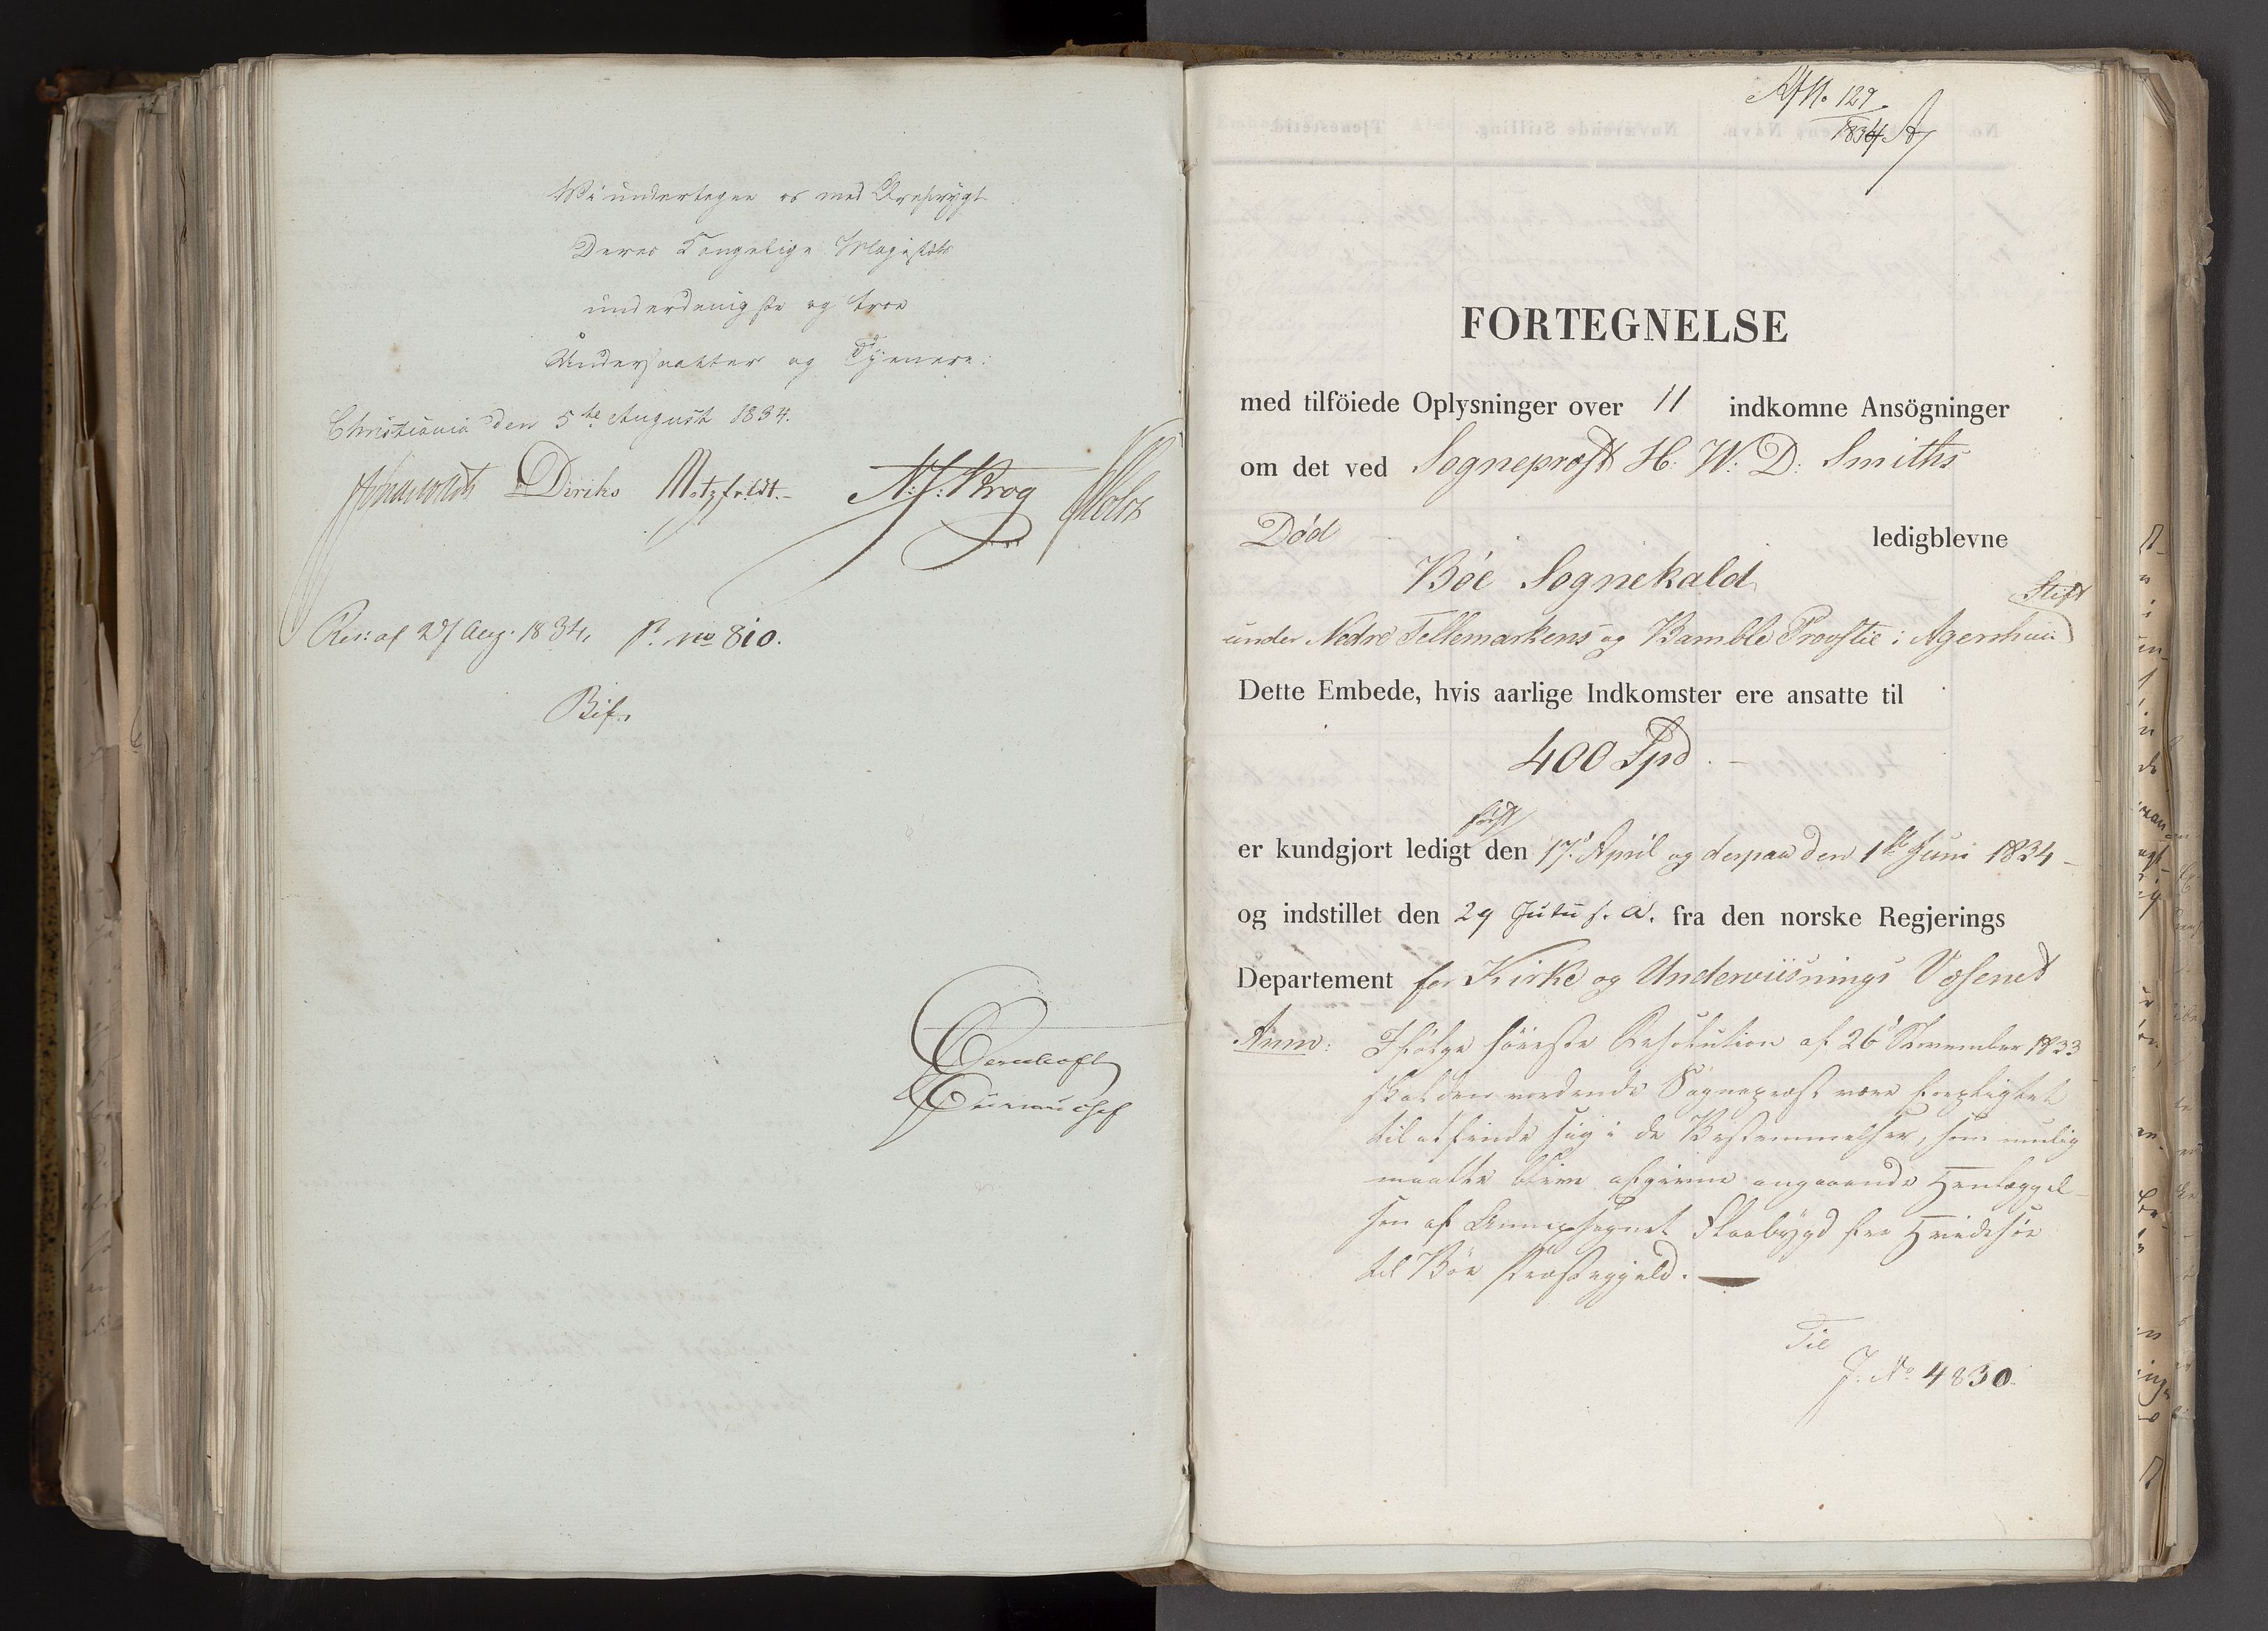 Vi undertegne os med Ærefrygt
Deres Kongelige Majestæts
underdanigste og troe
Undersaatter og Tjenere:
Christiania den 5te August 1834.
Diriks Motzfeldt. N: J: Krog Holst
Res: af 27 Aug. 1834, P. No 810.
Bif.
Afl. 129
1834
FORTEGNELSE
med tilföiede Oplysninger over 11 indkomne Ansögninger
om det ved Sogneprest H: W: D: Smiths
Død ledigblevne
Böe Sognekald
Stift
under Nedre Tellemarkens og Bamble Provstie i Agershuus
Dette Embede, hvis aarlige Indkomster ere ansatte til
400 Spd. -
först
er kundgjort ledigt den 17. April og derpaa den 1ste Juni 1834 -
og indstillet den 29 Juli s. a. fra den norske Regjerings
Departement for Kirke og Underviisnings Væsenet
Anm: Ifölge höieste Resolution af 26 November 1833
skal den vordende Sogneprest være forpligtet
til at finde sig i de Bestemmelser, som muelig
maatte blive afgivne angaaende Henlæggel-
sen af Annexsognet Flaabygd fra Hvidesöe
til Böe Præstegjeld.
Til
J. No 4830.